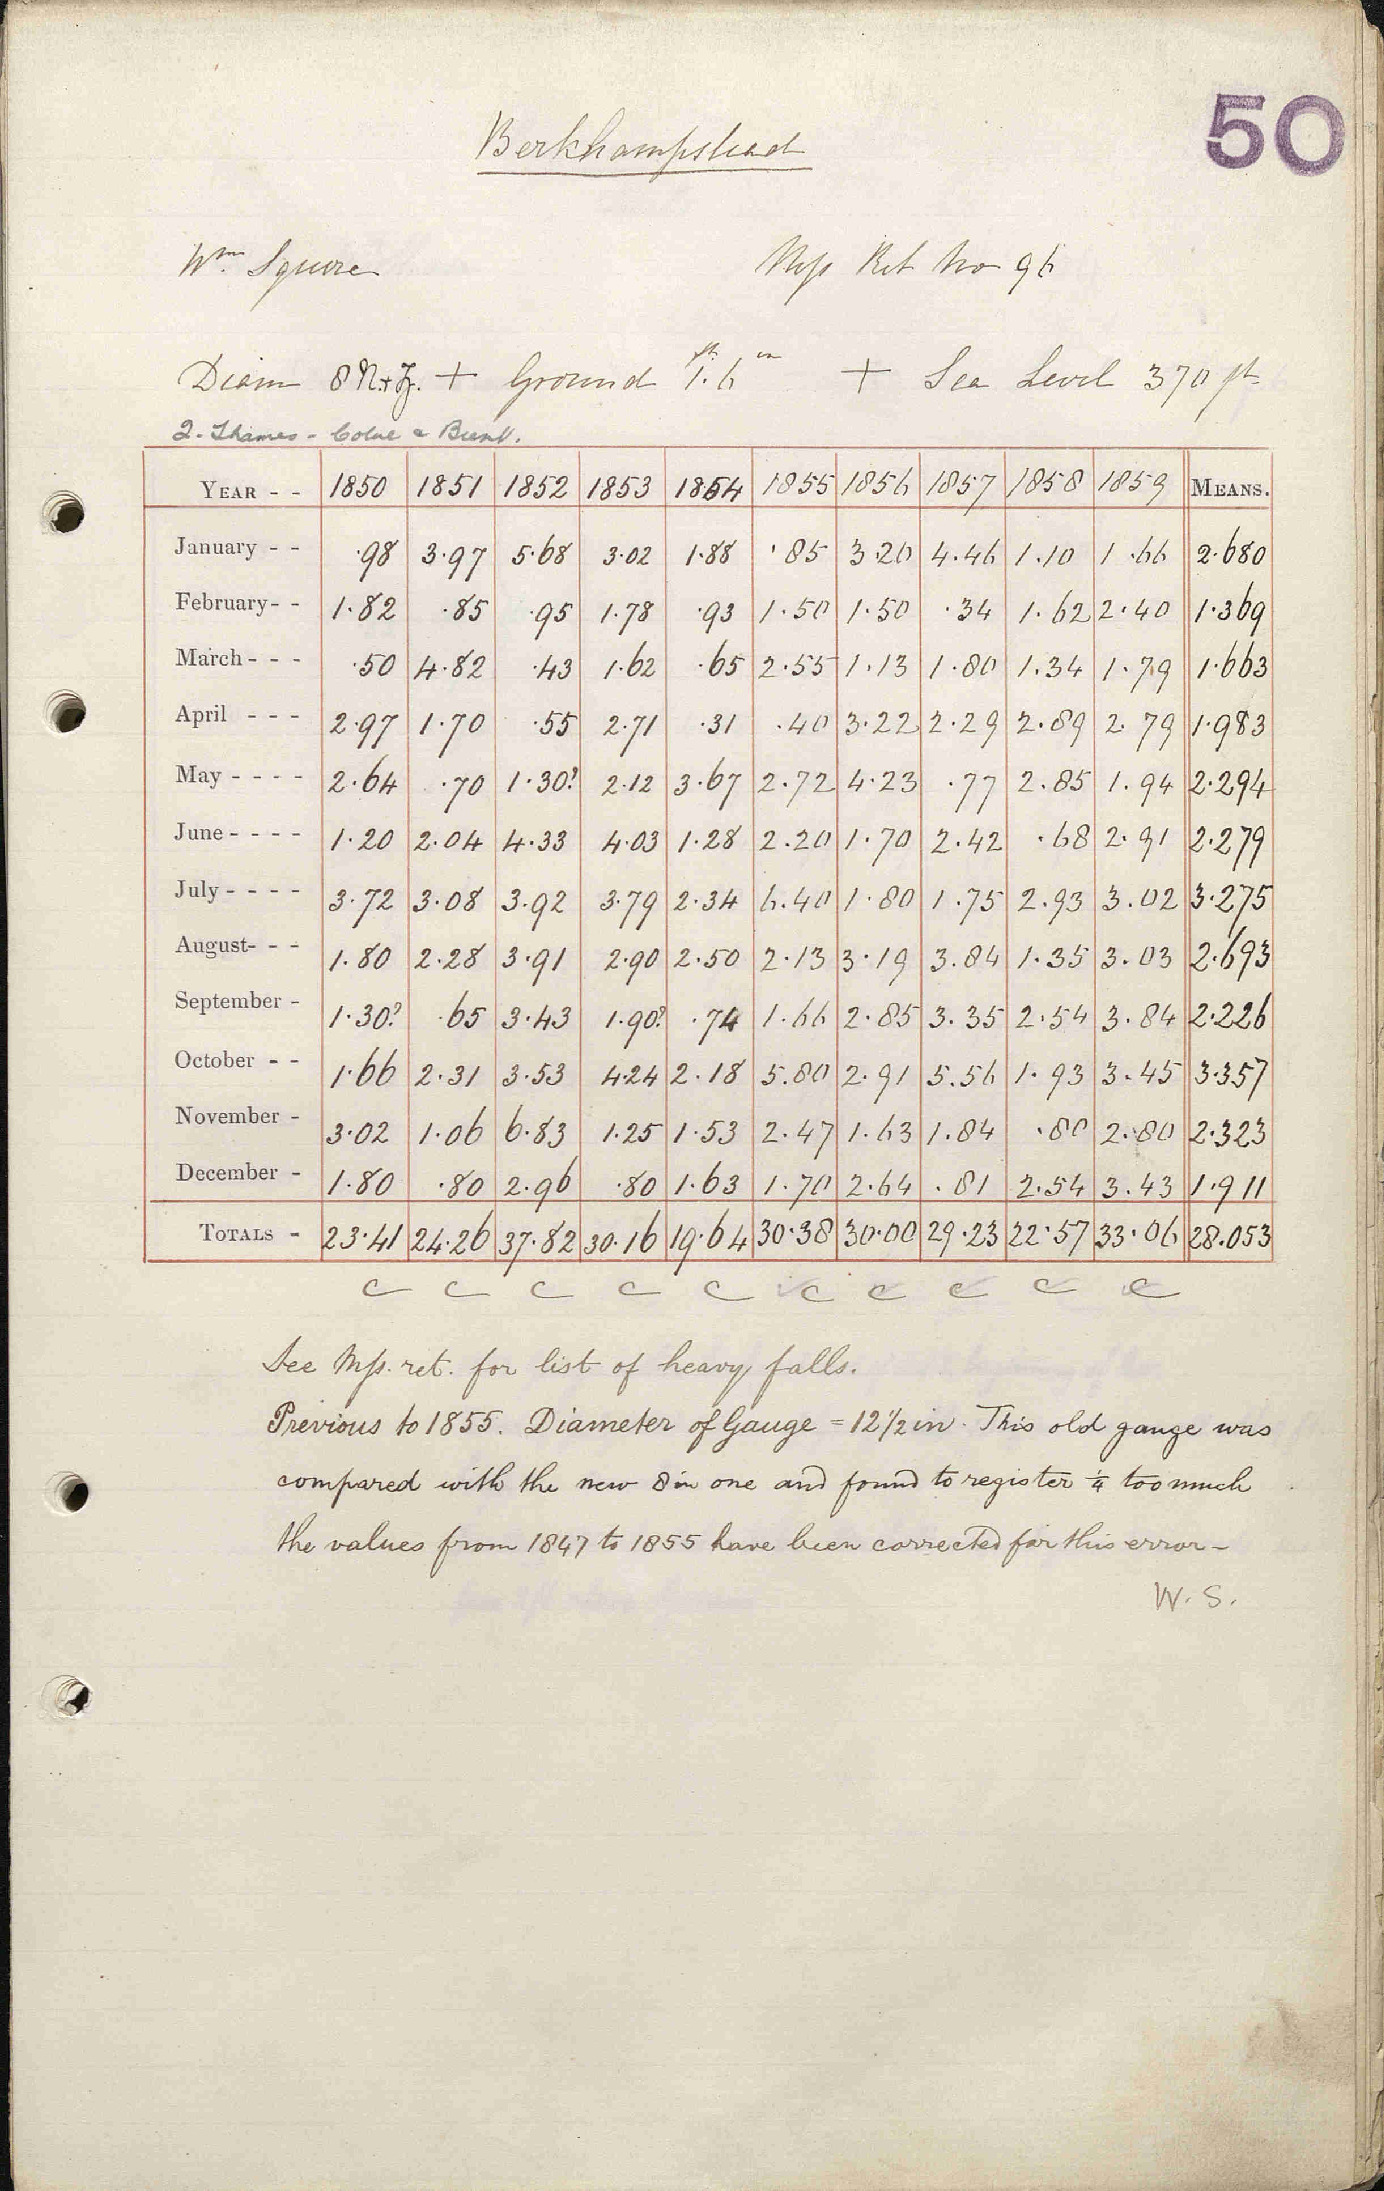 50
Berkhampstead
Wm. Squire Mss Ret No 96
Diam 8 N.+Z. + Ground 1.6 ft in + Sea Level 370 ft
2. Thames - Colne & Brent.
YEAR - - 1850 1851 1852 1853 1854 1855 1856 1857 1858 1859 MEANS.
January - - ·98 3·97 5·68 3·02 1·88 ·85 3·20 4·46 1·10 1·66 2·680
February - - 1·82 ·85 ·95 1·78 ·93 1·50 1·50 ·34 1·62 2·40 1·369
March - - - ·50 4·82 ·43 1·62 ·65 2·55 1·13 1·80 1·34 1·79 1·663
April - - - 2·97 1·70 ·55 2·71 ·31 ·40 3·22 2·29 2·89 2·79 1·983
May - - - - 2·64 ·70 1·30? 2·12 3·67 2·72 4·23 ·77 2·85 1·94 2·294
June - - - - 1·20 2·04 4·33 4·03 1·28 2·20 1·70 2·42 ·68 2·91 2·279
July - - - - 3·72 3·08 3·92 3·79 2·34 6·40 1·80 1·75 2·93 3·02 3·275
August - - - 1·80 2·28 3·91 2·90 2·50 2·13 3·19 3·84 1·35 3·03 2·693
September - 1·30? ·65 3·43 1·90? ·74 1·66 2·85 3·35 2·54 3·84 2·226
October - - 1·66 2·31 3·53 4·24 2·18 5·80 2·91 5·56 1·93 3·45 3·357
November - 3·02 1·06 6·83 1·25 1·53 2·47 1·63 1·84 ·80 2·80 2·323
December - 1·80 ·80 2·96 ·80 1·63 1·70 2·64 ·81 2·54 3·43 1·911
TOTALS - 23·41 24·26 37·82 30·16 19·64 30·38 30·00 29·23 22·57 33·06 28.053
C C C C C C C C C C
See Mss. ret. for list of heavy falls.
Previous to 1855. Diameter of Gauge = 12 1/2 in. This old gauge was
compared with the new 8 in one and found to register 1/4 too much
the values from 1847 to 1855 have been corrected for this error -
W. S.